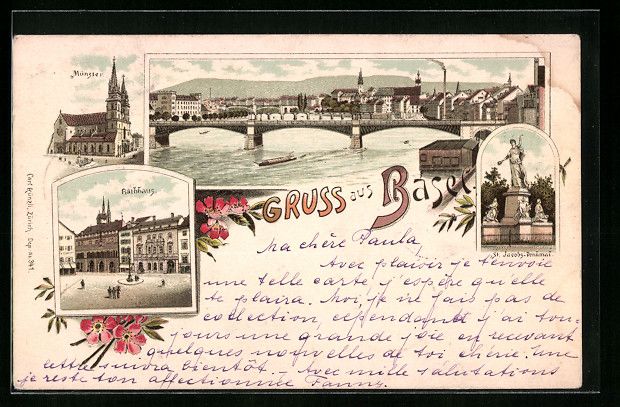 Münster
Rathhaus.
Carl Künzli, Zürich, Dep. No. 341.
GRUSS aus Basel
St. Jacobs-Denkmal
Ma chère Paula,
Avec plaisir je t'envoie
une telle carte, j'espère qu'elle
te plaira. Moi, je ne fais pas de
collection, cependant j'ai tou-
jours une grande joie en recevant
quelques nouvelles de toi chérie. une
lettre suivra bientôt. – Avec mille salutations
je reste ton affectionnée Fanny.